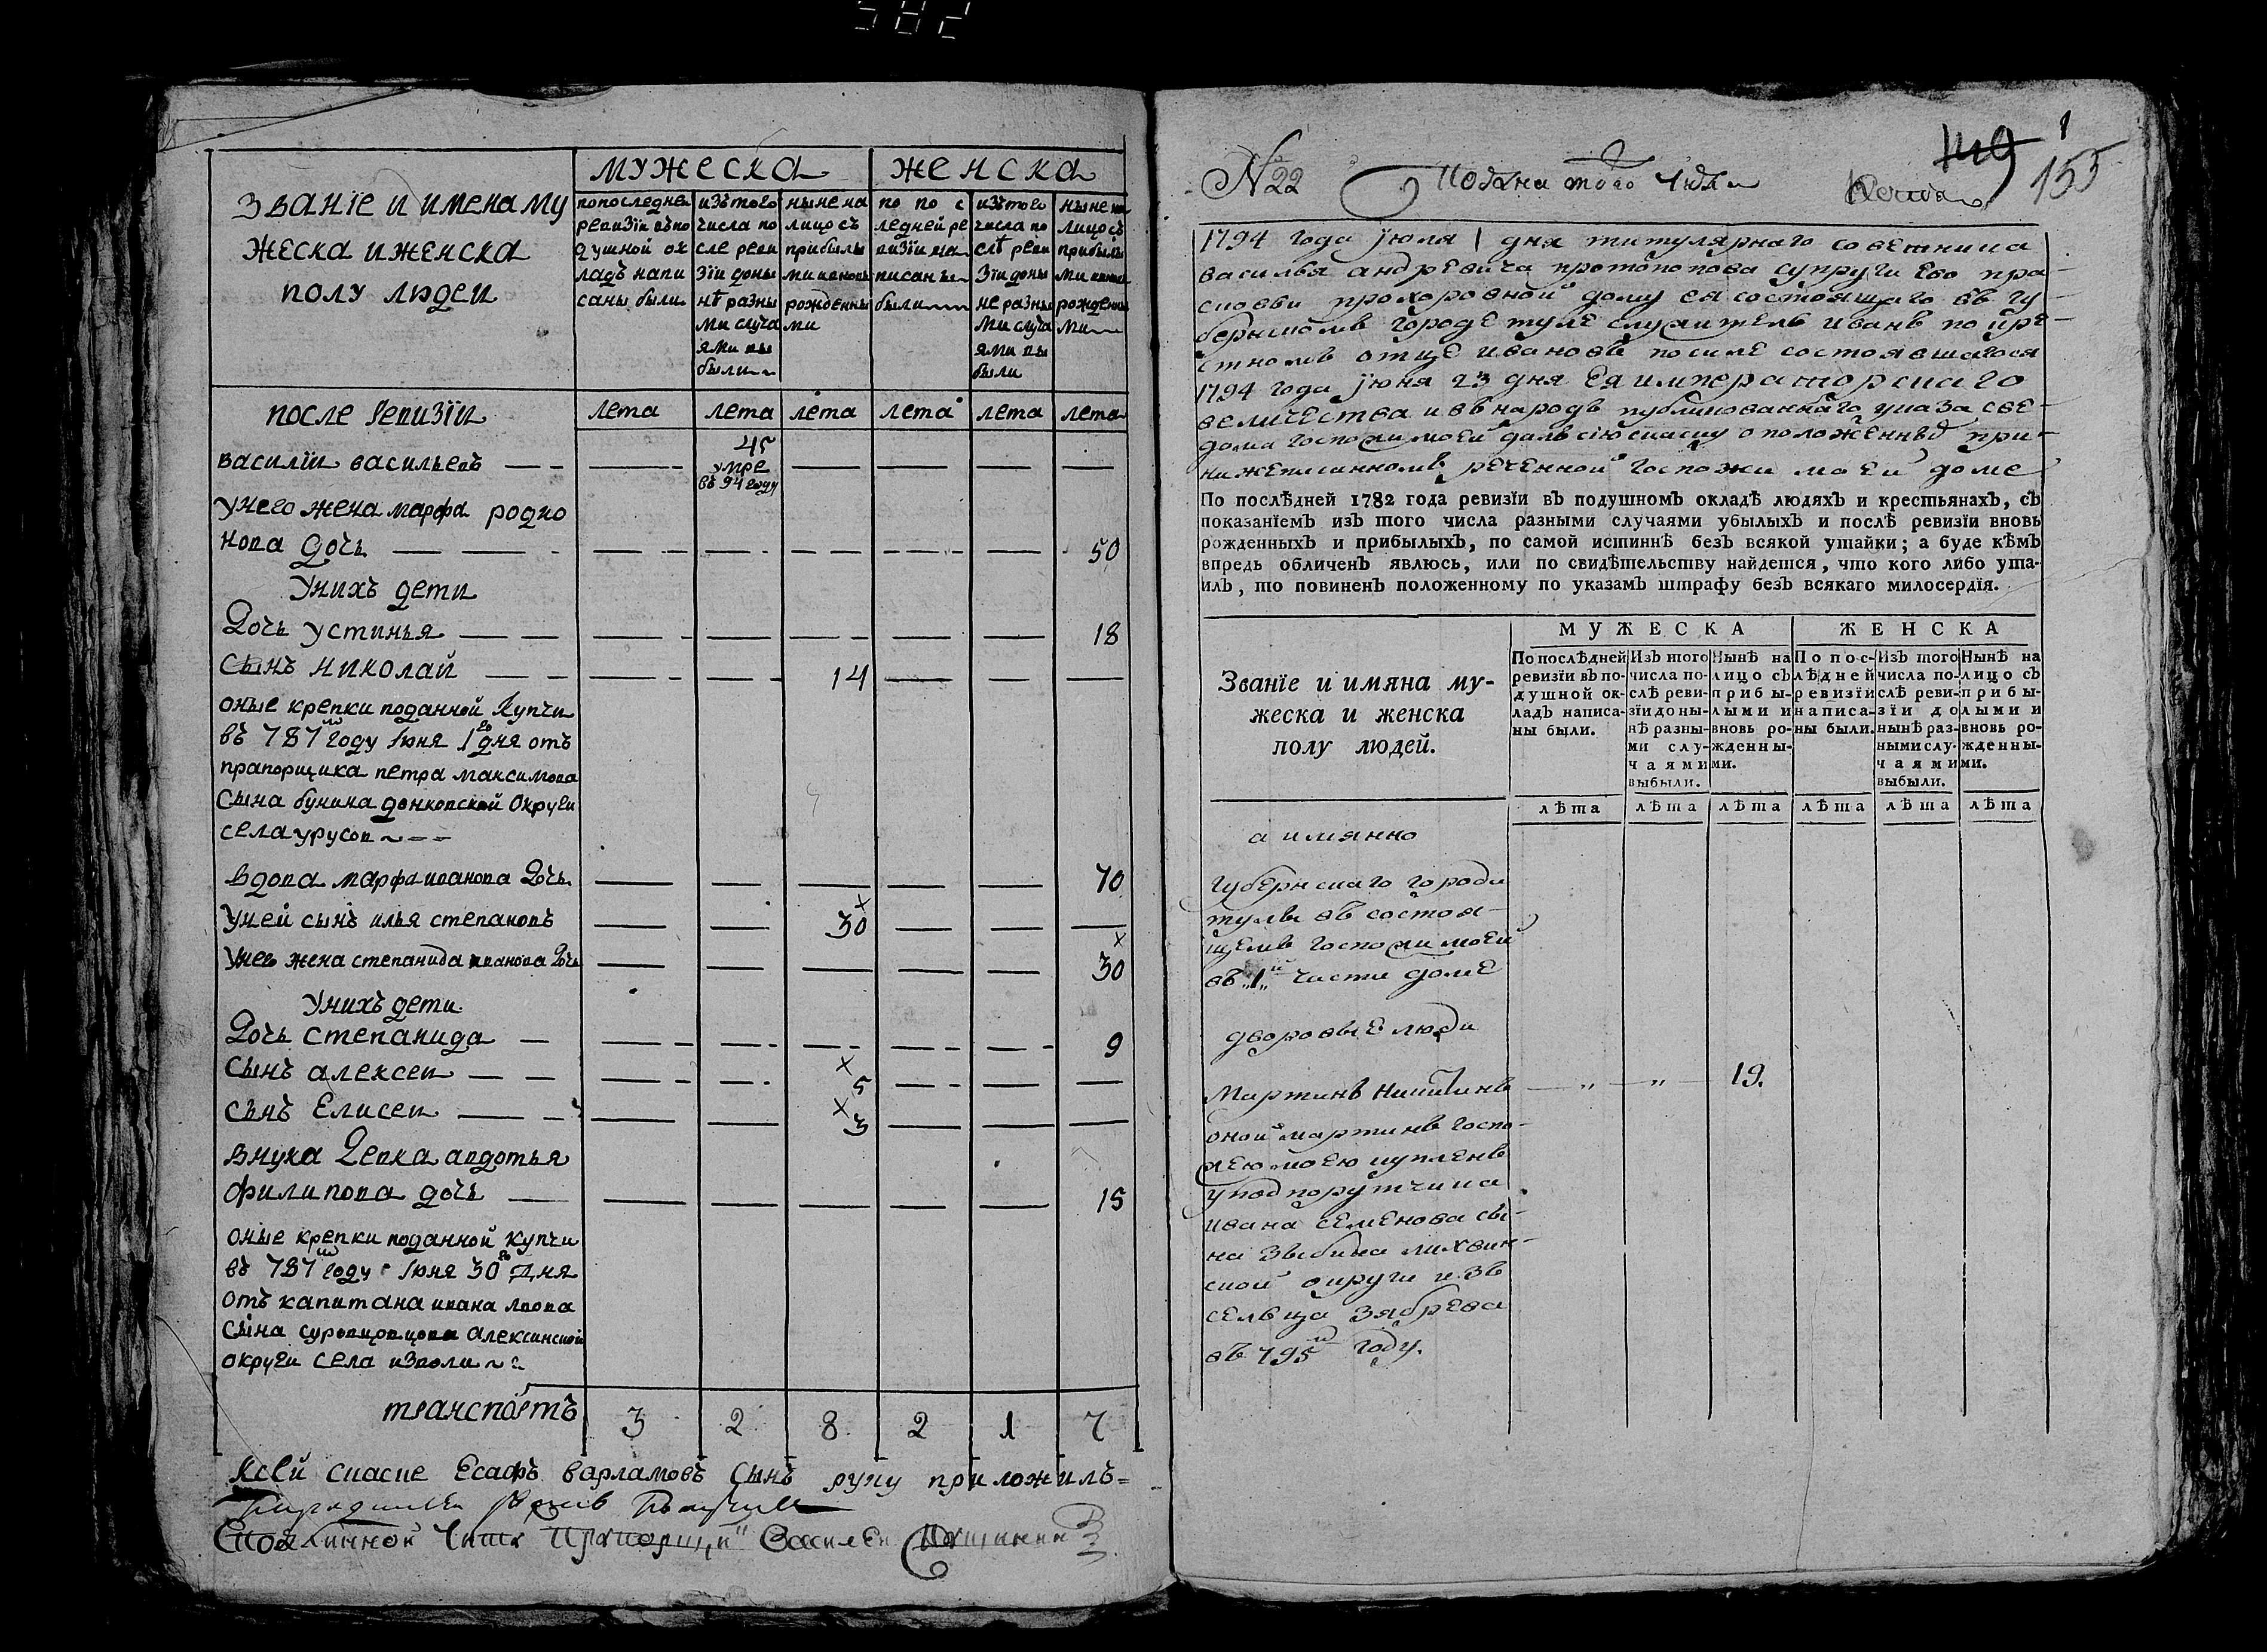 званїе и имена му
жеска и женска
полу людеи
мужеска
женска
попоследнеи
ревизїи въпо
душной ок
ладъ напи
саны были
изътого
числа по
сле реви
зїи доны
нѣ разны
ми случа
ями вы
были
ныне на
лицо съ
прибылы
ми ивновь
рожденны
ми
по по с
ледней ре
визїи на
писаны
были
изътого
числа по
слѣ реви
зїи доны
не разны
ми случа
ями вы
были
ныне на
лицо съ
прибылы
рожденны
ми
после ревизїи
лета лета лета лета лета лета
василїи васильевъ 45
умре
въ 94 году
унего жена марфа родио
нова дочь 50
унихъ дети
Дочь устинья 18
сынъ николай 14
оные крепки поданной купчи
въ 787 году Iюня 1 го дня отъ
прапорщика петра максимова
сына бунина донковской округи
села урусов
вдова марфа иванова дочь 70
уней сынъ илья степановъ х 30
унего жена степанида иванова дочь х 30
унихъ дети
Дочь степанида 9
сынъ алексеи х 5
сынъ Елисеи х 3
внука Девка авдотья
филипова дочь 15
оные крепки поданной купчи
въ 787 году Iюня 30 го дня
отъ капитана ивана львова
сына алексинской
округи села изволи
транспортъ 3 2 8 2 1 7
Ксей скаске Есафъ варламовъ сынъ руку приложилъ
Василеи
N 22
149
1
155
1794 года июля 1 дня титулярнаго советника
василья андреевича протопопова супруги Ево пра-
сковьи прохоровной дому ея состоящаго въ гу-
бернскомъ городе туле служитель иванъ по кре-
стномъ отце ивановъ по силе состоявшагося
1794 года июня 23 дня Ея императорскаго
величества и въ народъ публикованнаго указа све-
дома госпожи моеи далъ сїю скаску о положенныхъ при
нижеписанномъ реченной госпожи моеи доме
По послѣдней 1782 года ревизїи въ подушномъ окладѣ людяхъ и крестьянахъ, съ
показанїемъ изъ того числа разными случаями убылыхъ и послѣ ревизїи вновь
рожденныхъ и прибылыхъ, по самой истиннѣ безъ всякой утайки; а буде кѣмъ
впредь обличенъ явлюсь, или по свидѣтельству найдется, что кого либо ута-
илъ, то повиненъ положенному по указамъ штрафу безъ всякаго милосердїя.
Званїе и имяна му-
жеска и женска
полу людей.
МУЖЕСКА
ЖЕНСКА
По послѣдней
ревизїи въ по-
душной ок-
ладъ написа-
ны были.
Изъ того
числа по-
слѣ реви-
зїи до ны-
нѣ разны-
ми слу-
чаями
выбыли.
Нынѣ на
лицо съ
прибы-
лыми и
вновь ро-
жденны-
ми.
По пос-
лѣдней
ревизїи
написа-
ны были.
Изъ того
числа по-
слѣ реви-
зїи до
нынѣ раз-
ными слу-
чаями
выбыли.
Нынѣ на
лицо съ
прибы-
лыми и
вновь ро-
жденны-
ми.
лѣта лѣта лѣта лѣта лѣта лѣта
а имянно
губернскаго города
тулы въ состоя-
щемъ госпожи моеи
въ „1„ й части доме
дворовые люди
Мартинъ Никитинъ „ „ 19.
оной мартинъ госпо-
жею моею купленъ
у подпорутчика
ивана семенова сы-
на Зыбина лихвин-
ской округи изъ
сельца Зябрева
въ 795 м году.